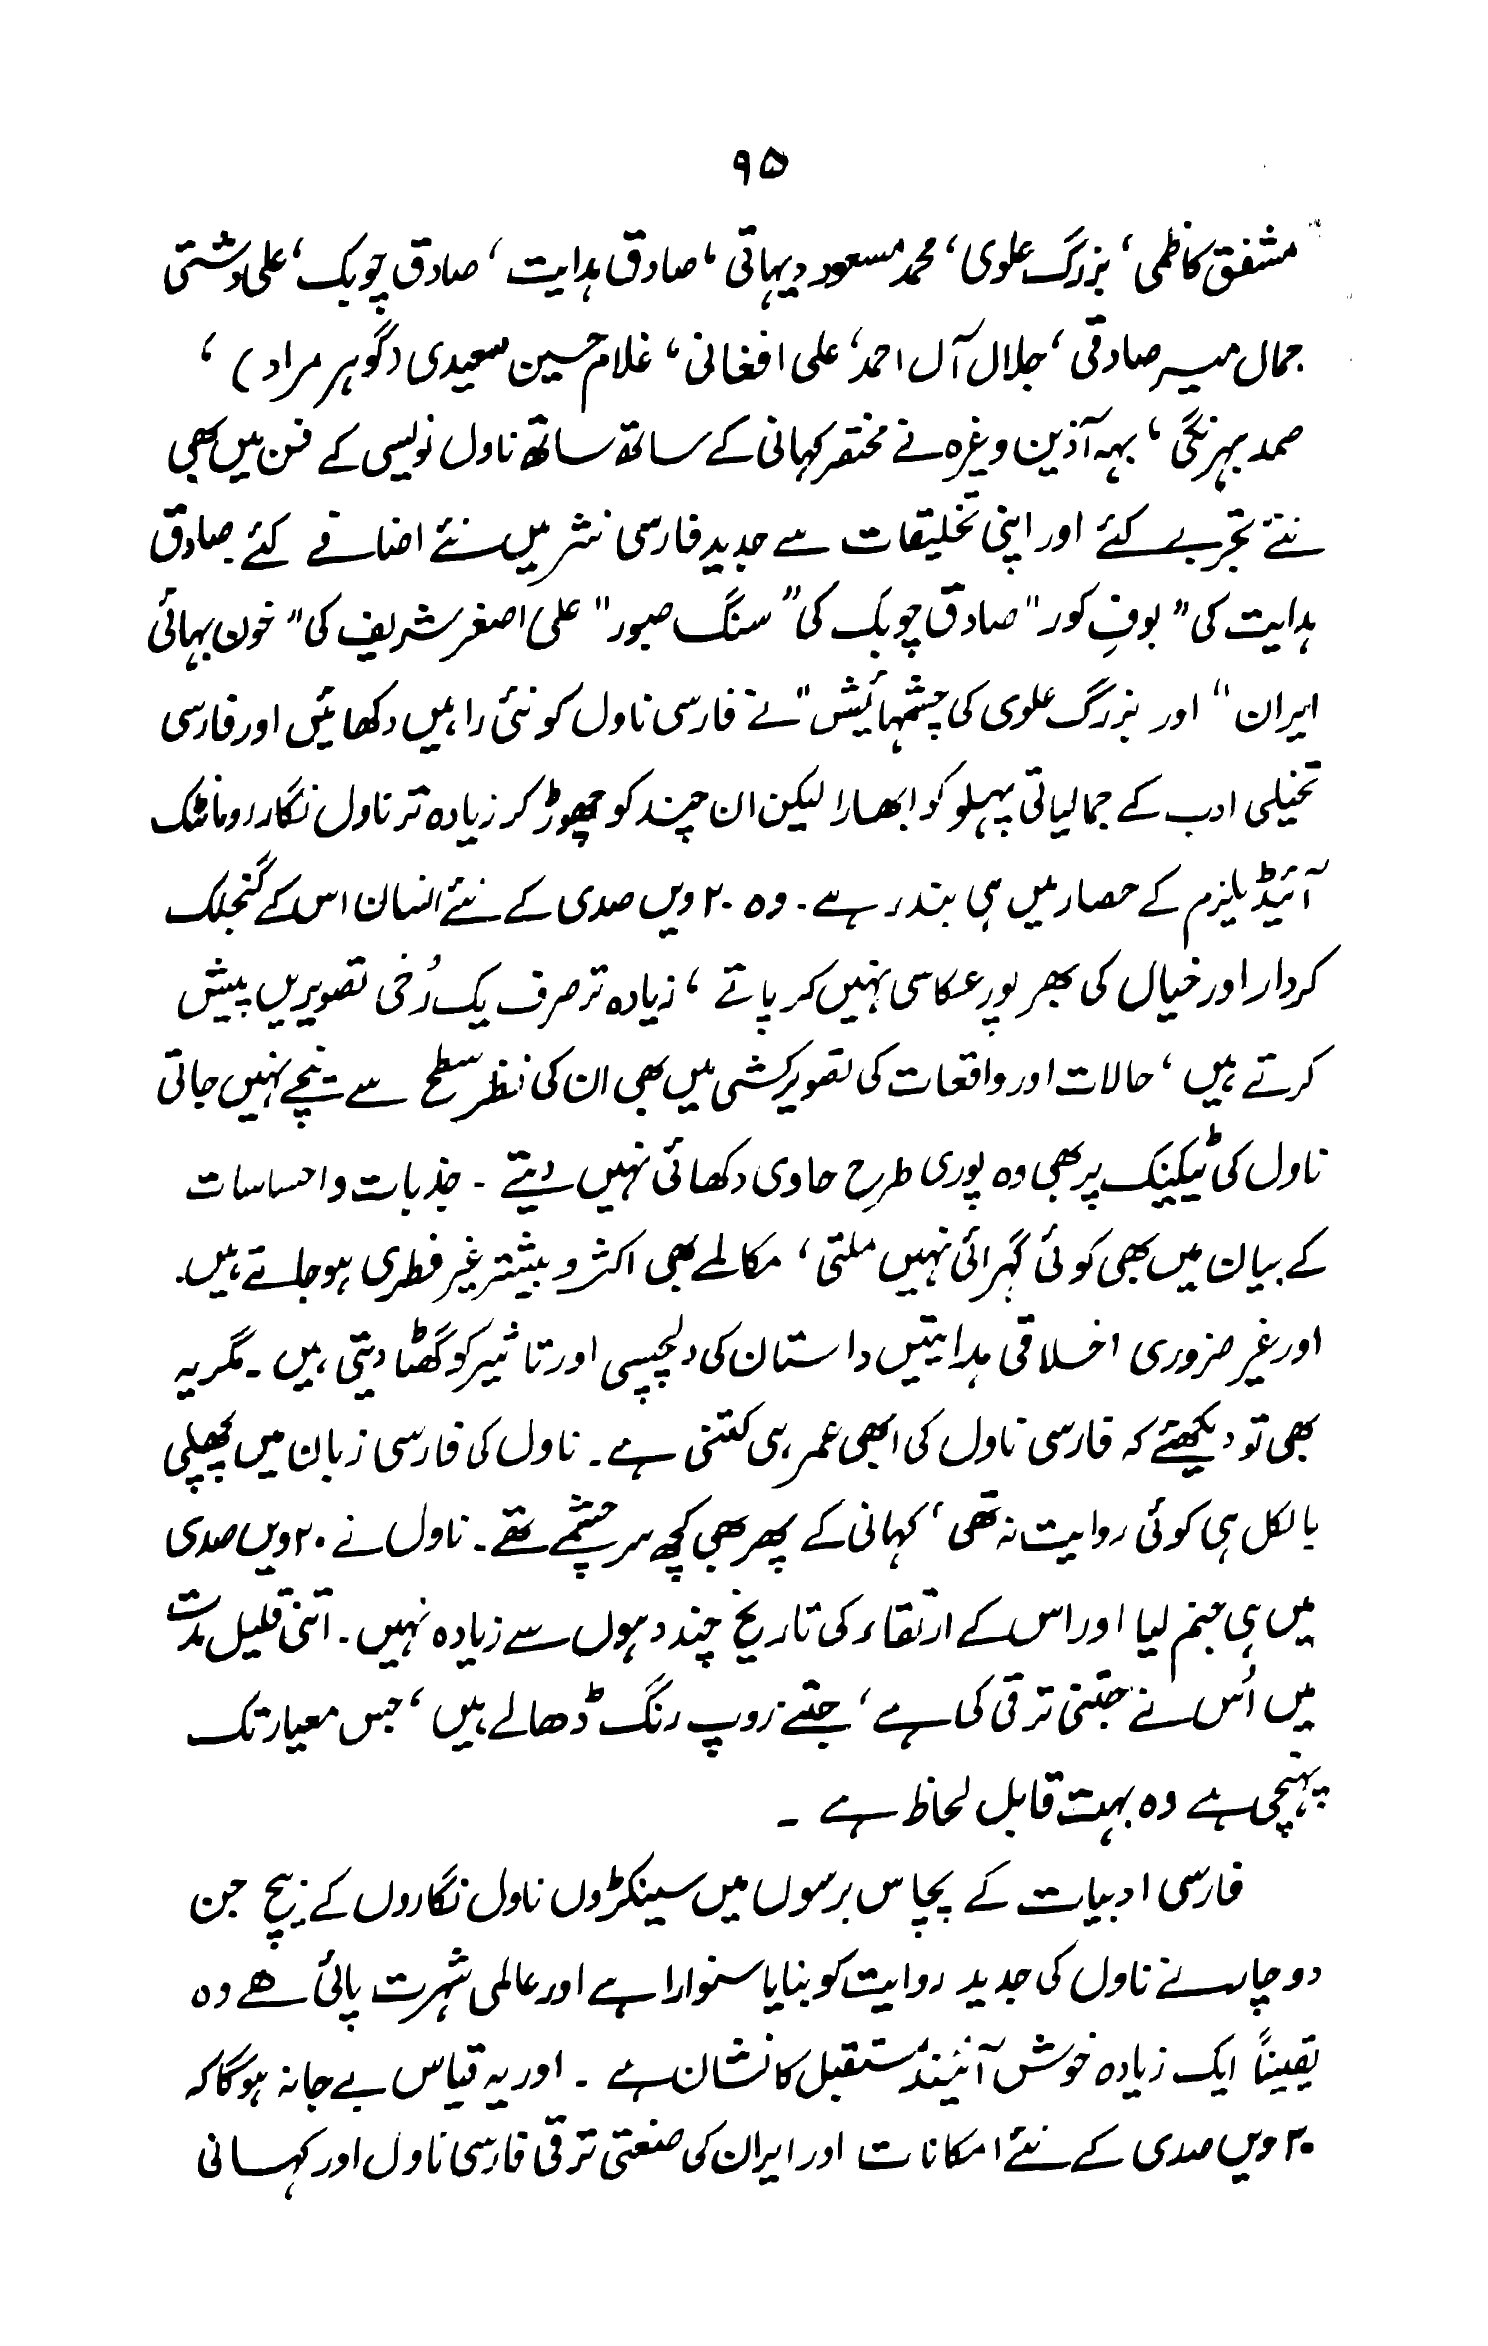 ۹۵
مشفق کاظمی، بزرگ علوی، محمد مسعود دیہاتی، صادق ہدایت، صادق چوبک، علی دشتی
جمال میر صادقی، جلال آل احمد، علی افغانی، غلام حسین سعیدی (گوہر مراد)،
صمد بہرنگی، بہہ آذین وغیرہ نے مختصر کہانی کے ساتھ ساتھ ناول نویسی کے فن میں بھی
نئے تجربے کئے اور اپنی تخلیقات سے جدید فارسی نثر میں نئے اضافے کئے۔ صادق
ہدایت کی "بوفِ کور" صادق چوبک کی "سنگ صبور" علی اصغر شریف کی "خون بہائی
ایران" اور بزرگ علوی کی چشمہائیش" نے فارسی ناول کو نئی راہیں دکھائیں اور فارسی
تخیلی ادب کے جمالیاتی پہلو کو ابھارا لیکن ان چند کو چھوڑ کر زیادہ تر ناول نگار رومانٹک
آئیڈیلیزم کے حصار میں ہی بند رہے۔ وہ ۲۰ ویں صدی کے نئے انسان اس کے گنجلک
کردار اور خیال کی بھرپور عکاسی نہیں کر پاتے، زیادہ تر صرف یک رُخی تصویریں پیش
کرتے ہیں، حالات اور واقعات کی تصویر کشی میں بھی ان کی نظر سطح سے نیچے نہیں جاتی
ناول کی ٹیکنیک پر بھی وہ پوری طرح حاوی دکھائی نہیں دیتے۔ جذبات و احساسات
کے بیان میں بھی کوئی گہرائی نہیں ملتی، مکالمے بھی اکثر و بیشتر غیر فطری ہو جاتے ہیں۔
اور غیر ضروری اخلاقی ہدایتیں داستان کی دلچسپی اور تاثیر کو گھٹا دیتی ہیں۔ مگر یہ
بھی تو دیکھئے کہ فارسی ناول کی ابھی عمر ہی کتنی ہے۔ ناول کی فارسی زبان میں پچھلی
بالکل ہی کوئی روایت نہ تھی، کہانی کے پھر بھی کچھ سرچشمے تھے۔ ناول نے ۲۰ ویں صدی
میں ہی جنم لیا اور اس کے ارتقاء کی تاریخ چند دہوں سے زیادہ نہیں۔ اتنی قلیل مدت
میں اُس نے جتنی ترقی کی ہے، جتنے روپ رنگ ڈھالے ہیں، جس معیار تک
پہنچی ہے وہ بہت قابل لحاظ ہے۔
فارسی ادبیات کے پچاس برسوں میں سینکڑوں ناول نگاروں کے بیچ جن
دو چار نے ناول کی جدید روایت کو بنایا سنوارا ہے اور عالمی شہرت پائی ہے وہ
یقیناً ایک زیادہ خوش آئند مستقبل کا نشان ہے۔ اور یہ قیاس بے جا نہ ہوگا کہ
۲۰ ویں صدی کے نئے امکانات اور ایران کی صنعتی ترقی فارسی ناول اور کہانی